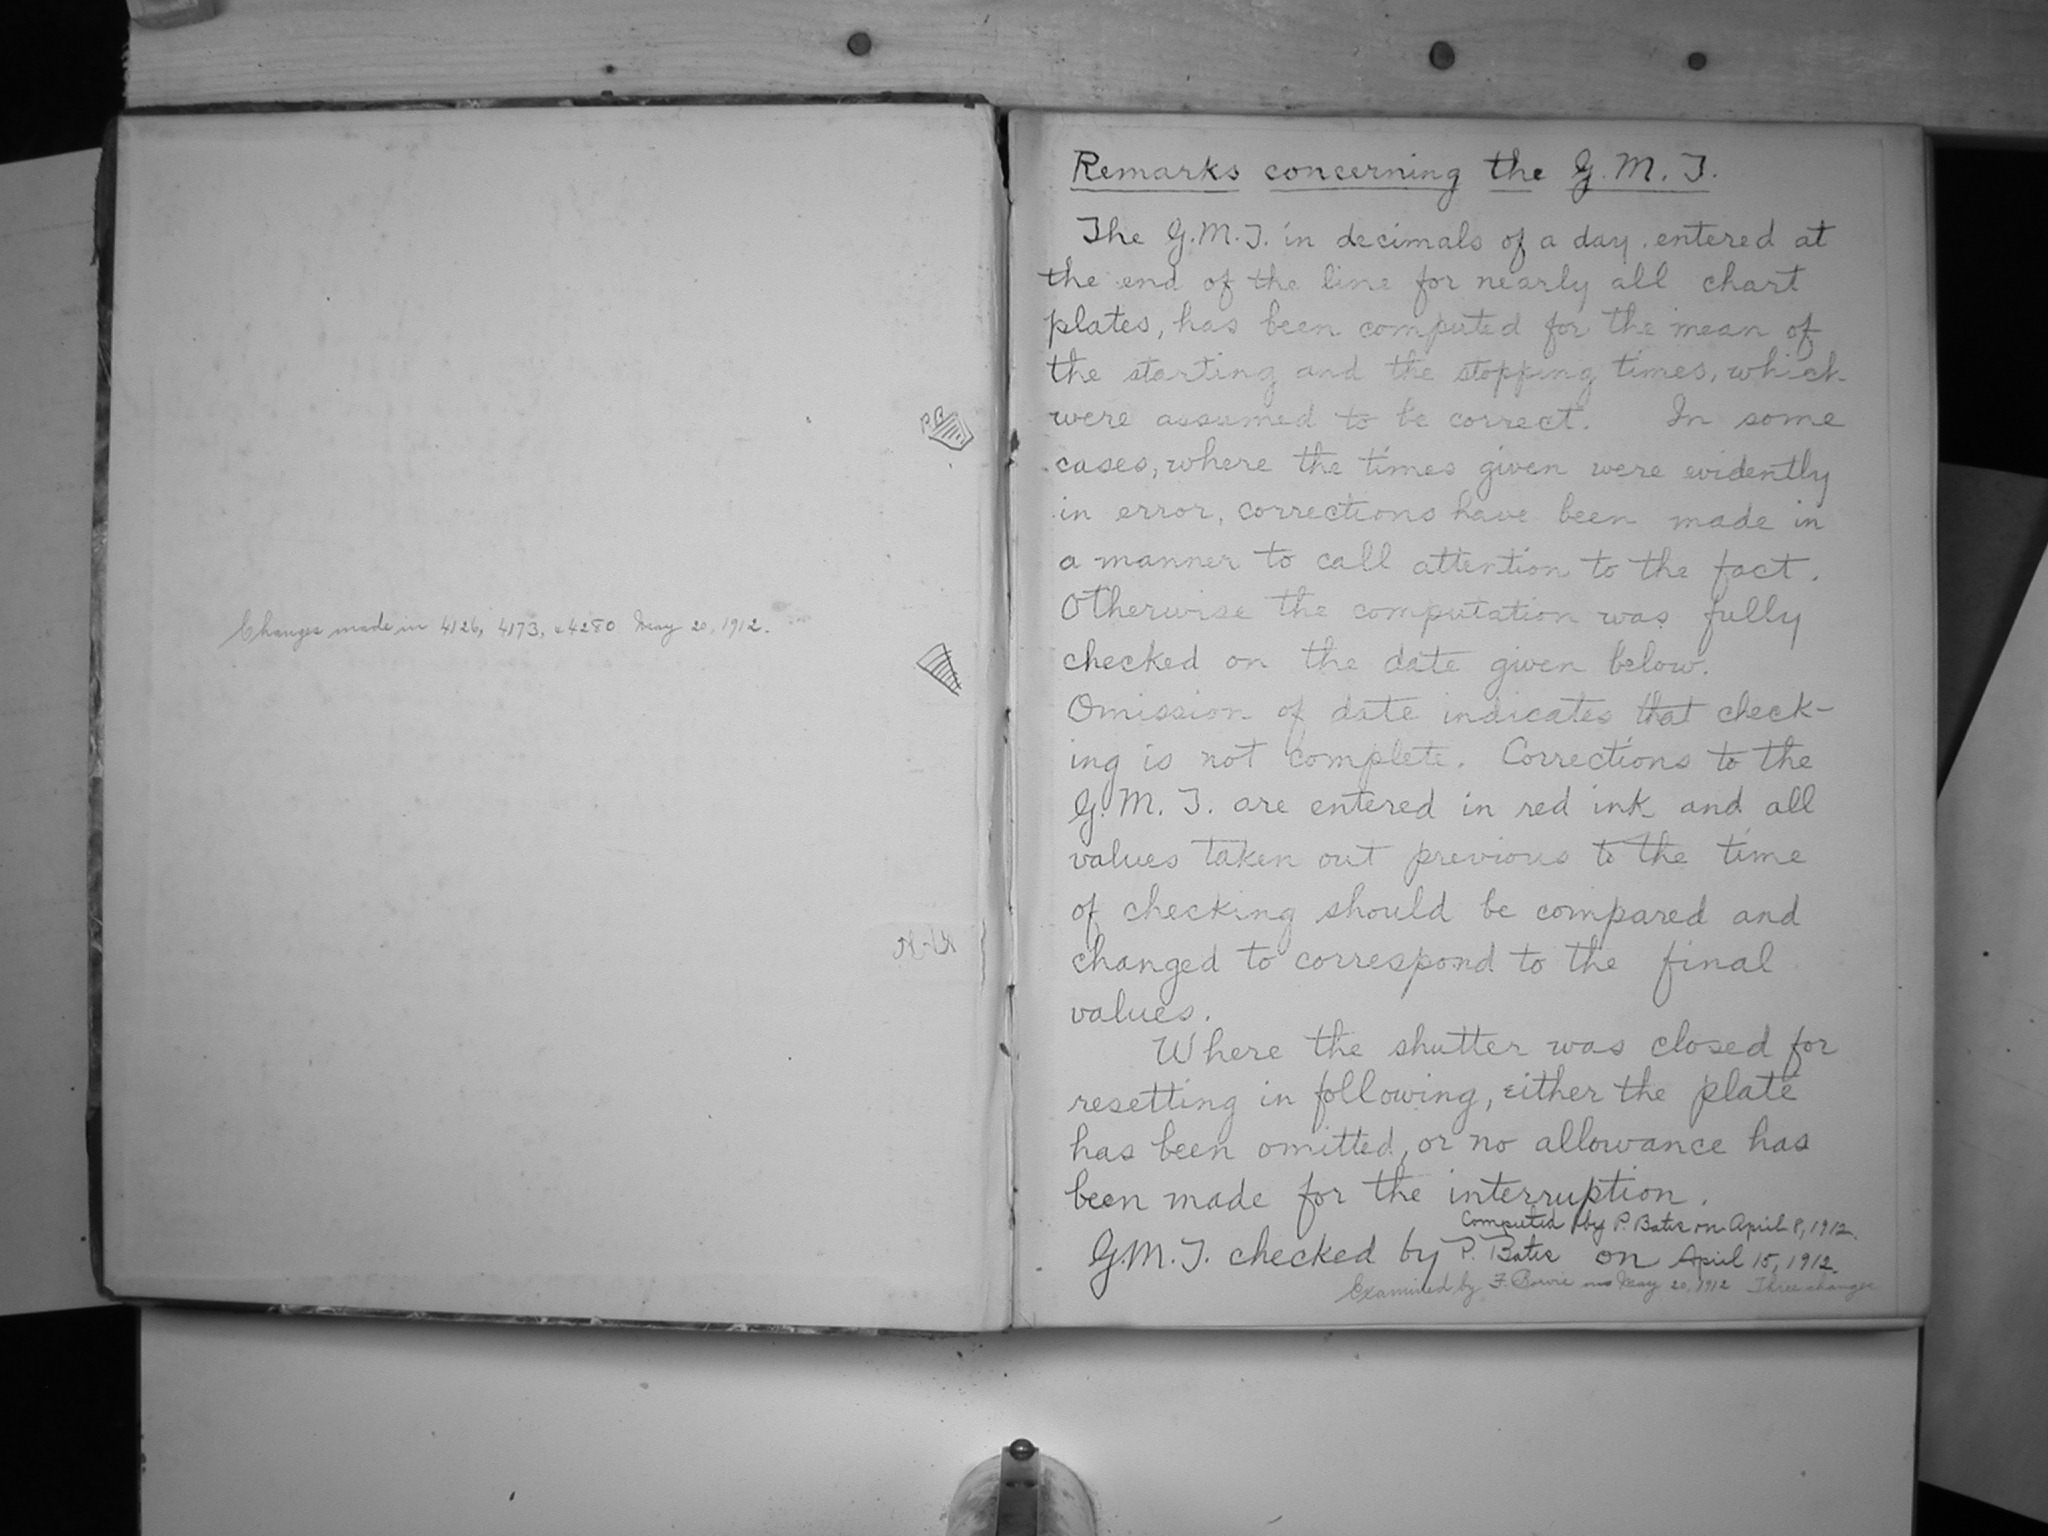 Changes made in 4126, 4173, & 4280 May 20, 1912.
Remarks concerning the G.M.T.
The G.M.T. in decimals of a day, entered at
the end of the line for nearly all chart
plates, has been computed for the mean of
the starting and the stopping times, which
were assumed to be correct. In some
cases, where the times given were evidently
in error, corrections have been made in
a manner to call attention to the fact.
Otherwise the computation was fully
checked on the date given below.
Omission of date indicates that check-
ing is not complete. Corrections to the
G.M.T. are entered in red ink and all
values taken out previous to the time
of checking should be compared and
changed to correspond to the final
values.
Where the shutter was closed for
resetting in following, either the plate
has been omitted, or no allowance has
been made for the interruption.
Computed by P. Bates on April 8, 1912.
G.M.T. checked by P. Bates on April 15, 1912.
Examined by F. Bowie on May 20, 1912 Three changes